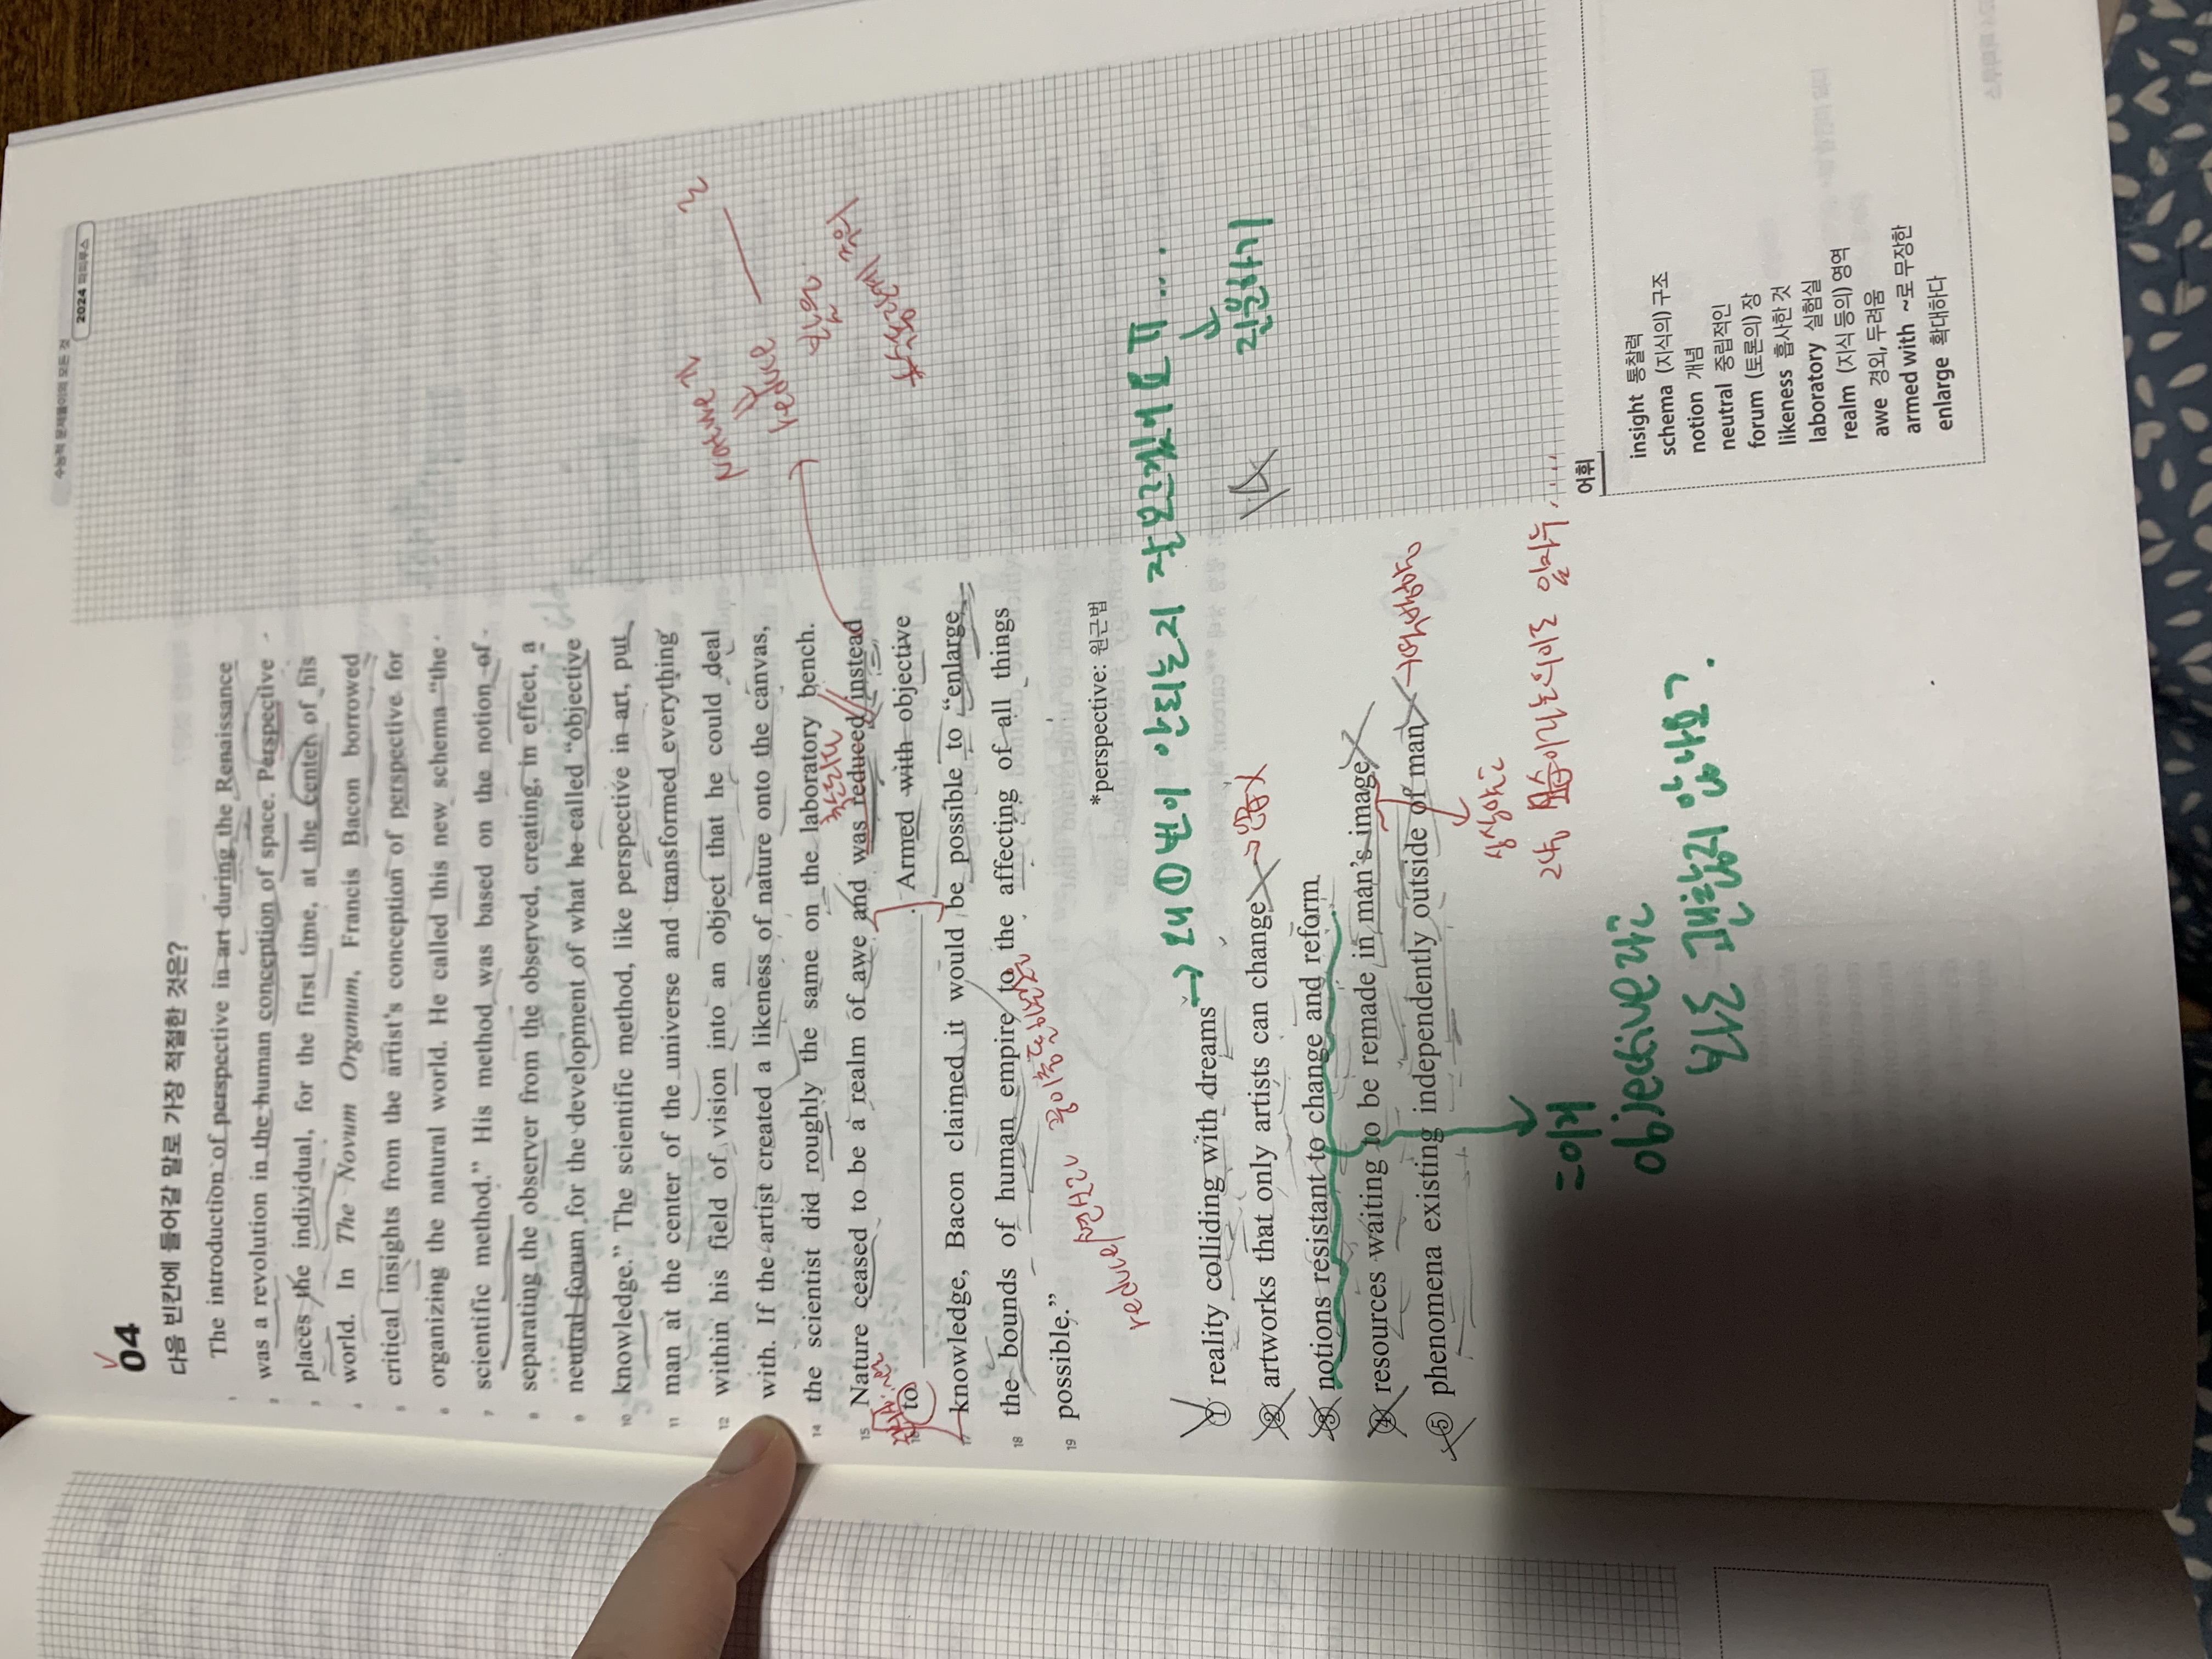 수능적 문제풀이의 모든 것
2024 피피루스
04
다음 빈칸에 들어갈 말로 가장 적절한 것은?
1 The introduction of perspective in art during the Renaissance
2 was a revolution in the human conception of space. Perspective
3 places the individual, for the first time, at the center of his
4 world. In The Novum Organum, Francis Bacon borrowed
5 critical insights from the artist's conception of perspective for
6 organizing the natural world. He called this new schema "the
7 scientific method." His method was based on the notion of
8 separating the observer from the observed, creating, in effect, a
9 neutral forum for the development of what he called "objective
10 knowledge." The scientific method, like perspective in art, put
11 man at the center of the universe and transformed everything
12 within his field of vision into an object that he could deal
with. If the artist created a likeness of nature onto the canvas,
14 the scientist did roughly the same on the laboratory bench.
15 Nature ceased to be a realm of awe and was reduced instead
16 to ____________. Armed with objective
17 knowledge, Bacon claimed it would be possible to "enlarge
18 the bounds of human empire to the affecting of all things
19 possible."
*perspective: 원근법
Nature가
reduce
본인의
reduce
→ 왜 ①번이 안되는지 잘 모르겠어요ㅠ...
질문하기
① reality colliding with dreams
② artworks that only artists can change
③ notions resistant to change and reform
④ resources waiting to be remade in man's image
⑤ phenomena existing independently outside of man
=이게
objective라는
말도 괜찮지 않나요?
어휘
insight 통찰력
schema (지식의) 구조
notion 개념
neutral 중립적인
forum (토론의) 장
likeness 흡사한 것
laboratory 실험실
realm (지식 등의) 영역
awe 경외, 두려움
armed with ~로 무장한
enlarge 확대하다